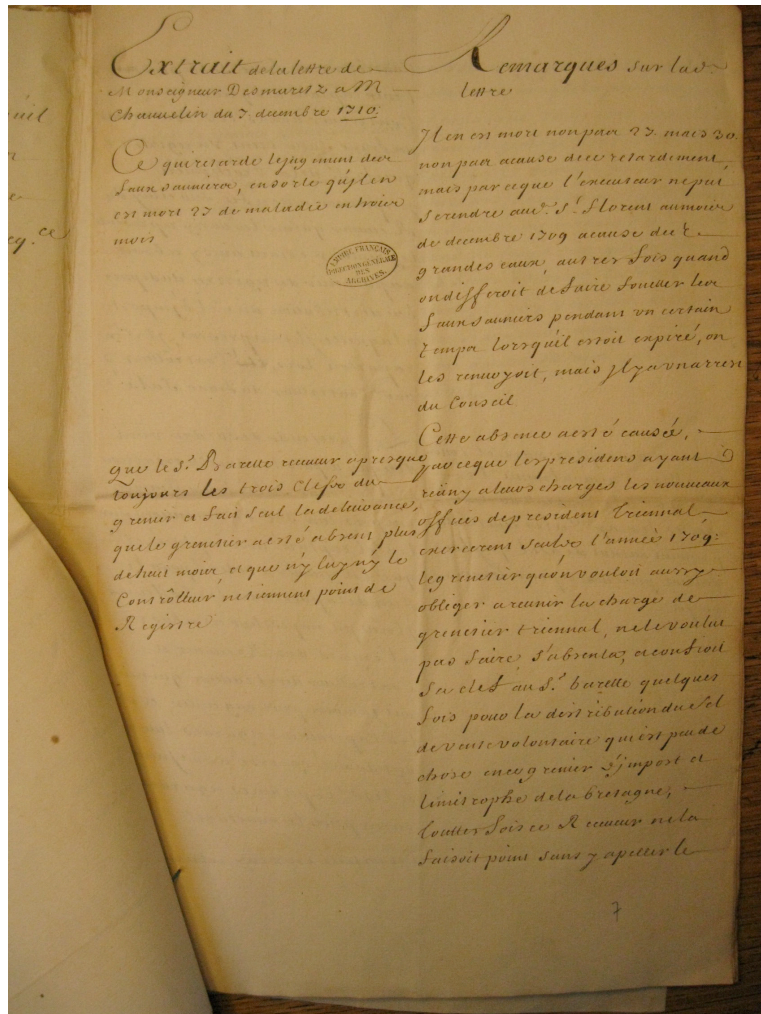 Extrait de la lettre de
Monseigneur Desmaretz a M
Chauuelin du 7 decembre 1710.
Ce qui retarde le jugement des
faux sauniers, en sorte qu'jl en
est mort 27 de maladie en trois
mois
EMPIRE FRANÇAIS
DIRECTION GÉNÉRALE
DES
ARCHIVES.
que le Sr. Barette receueur a presque
toujours les trois clefs du
grenier et fait seul la deliurance,
que le grenetier a esté absent plus
de huit mois, et que n'y luy n'y le
Contrôlleur ne tiennent point de
Registre
Remarques sur lad.
lettre
Jl en est mort non pas 27. mais 30.
non pas a cause de ce retardement
mais parce que l'executeur ne put
se rendre aud. St. Florent au mois
de decembre 1709 a cause des
grandes eaux, autres fois quand
on differoit de faire fouetter les
faux sauniers pendant un certain
temps lorsqu'il estoit expiré, on
les renuoyoit, mais jl y a un arrest
du Conseil
Cette absence a esté causée,
parce que les presidens ayant
reüny a leurs charges les nouueaux
offices de president triennal
exercerent seuls l'année 1709:
le grenetier qu'on vouloit aussy
obliger a reunir la charge de
grenetier triennal, ne le voulut
pas faire s'absenta, et confioit
sa clef au Sr. barette quelques
fois pour la distribution du sel
de vente volontaire qui est peu de
chose en ce grenier d'jmpost et
limitrophe de la bretagne,
touttes fois ce Receueur ne la
faisoit point sans y apeller le
7